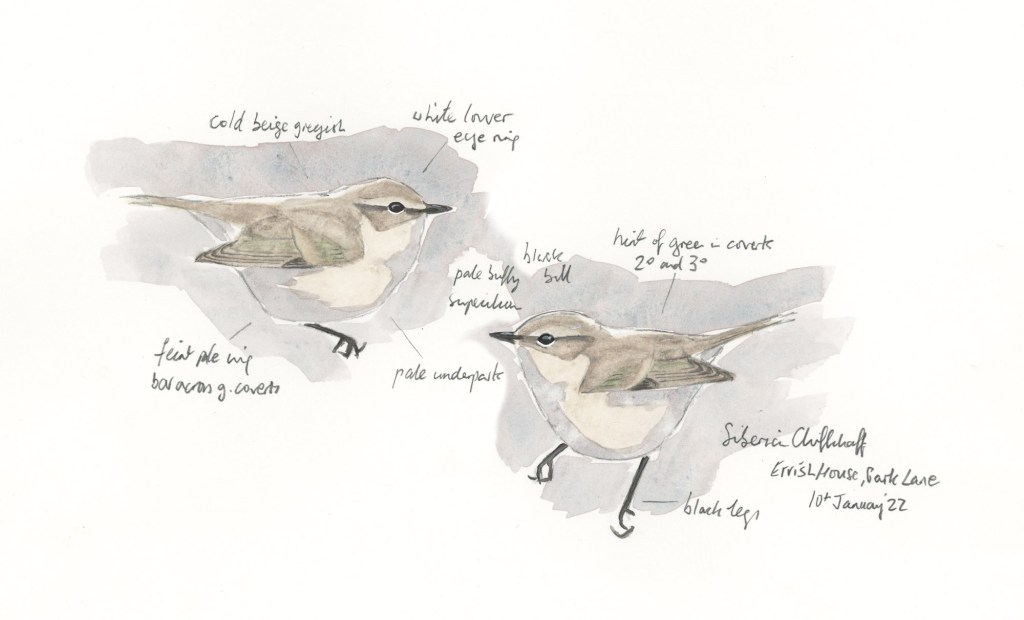 cold beige greyish
white lower
eye ring
hint of green in coverts
2° and 3°
black
bill
pale buffy
supercilium
feint pale wing
bar across g. coverts
pale underparts
Siberian Chiffchaff
Errish House, Lane
10th January '22
black legs